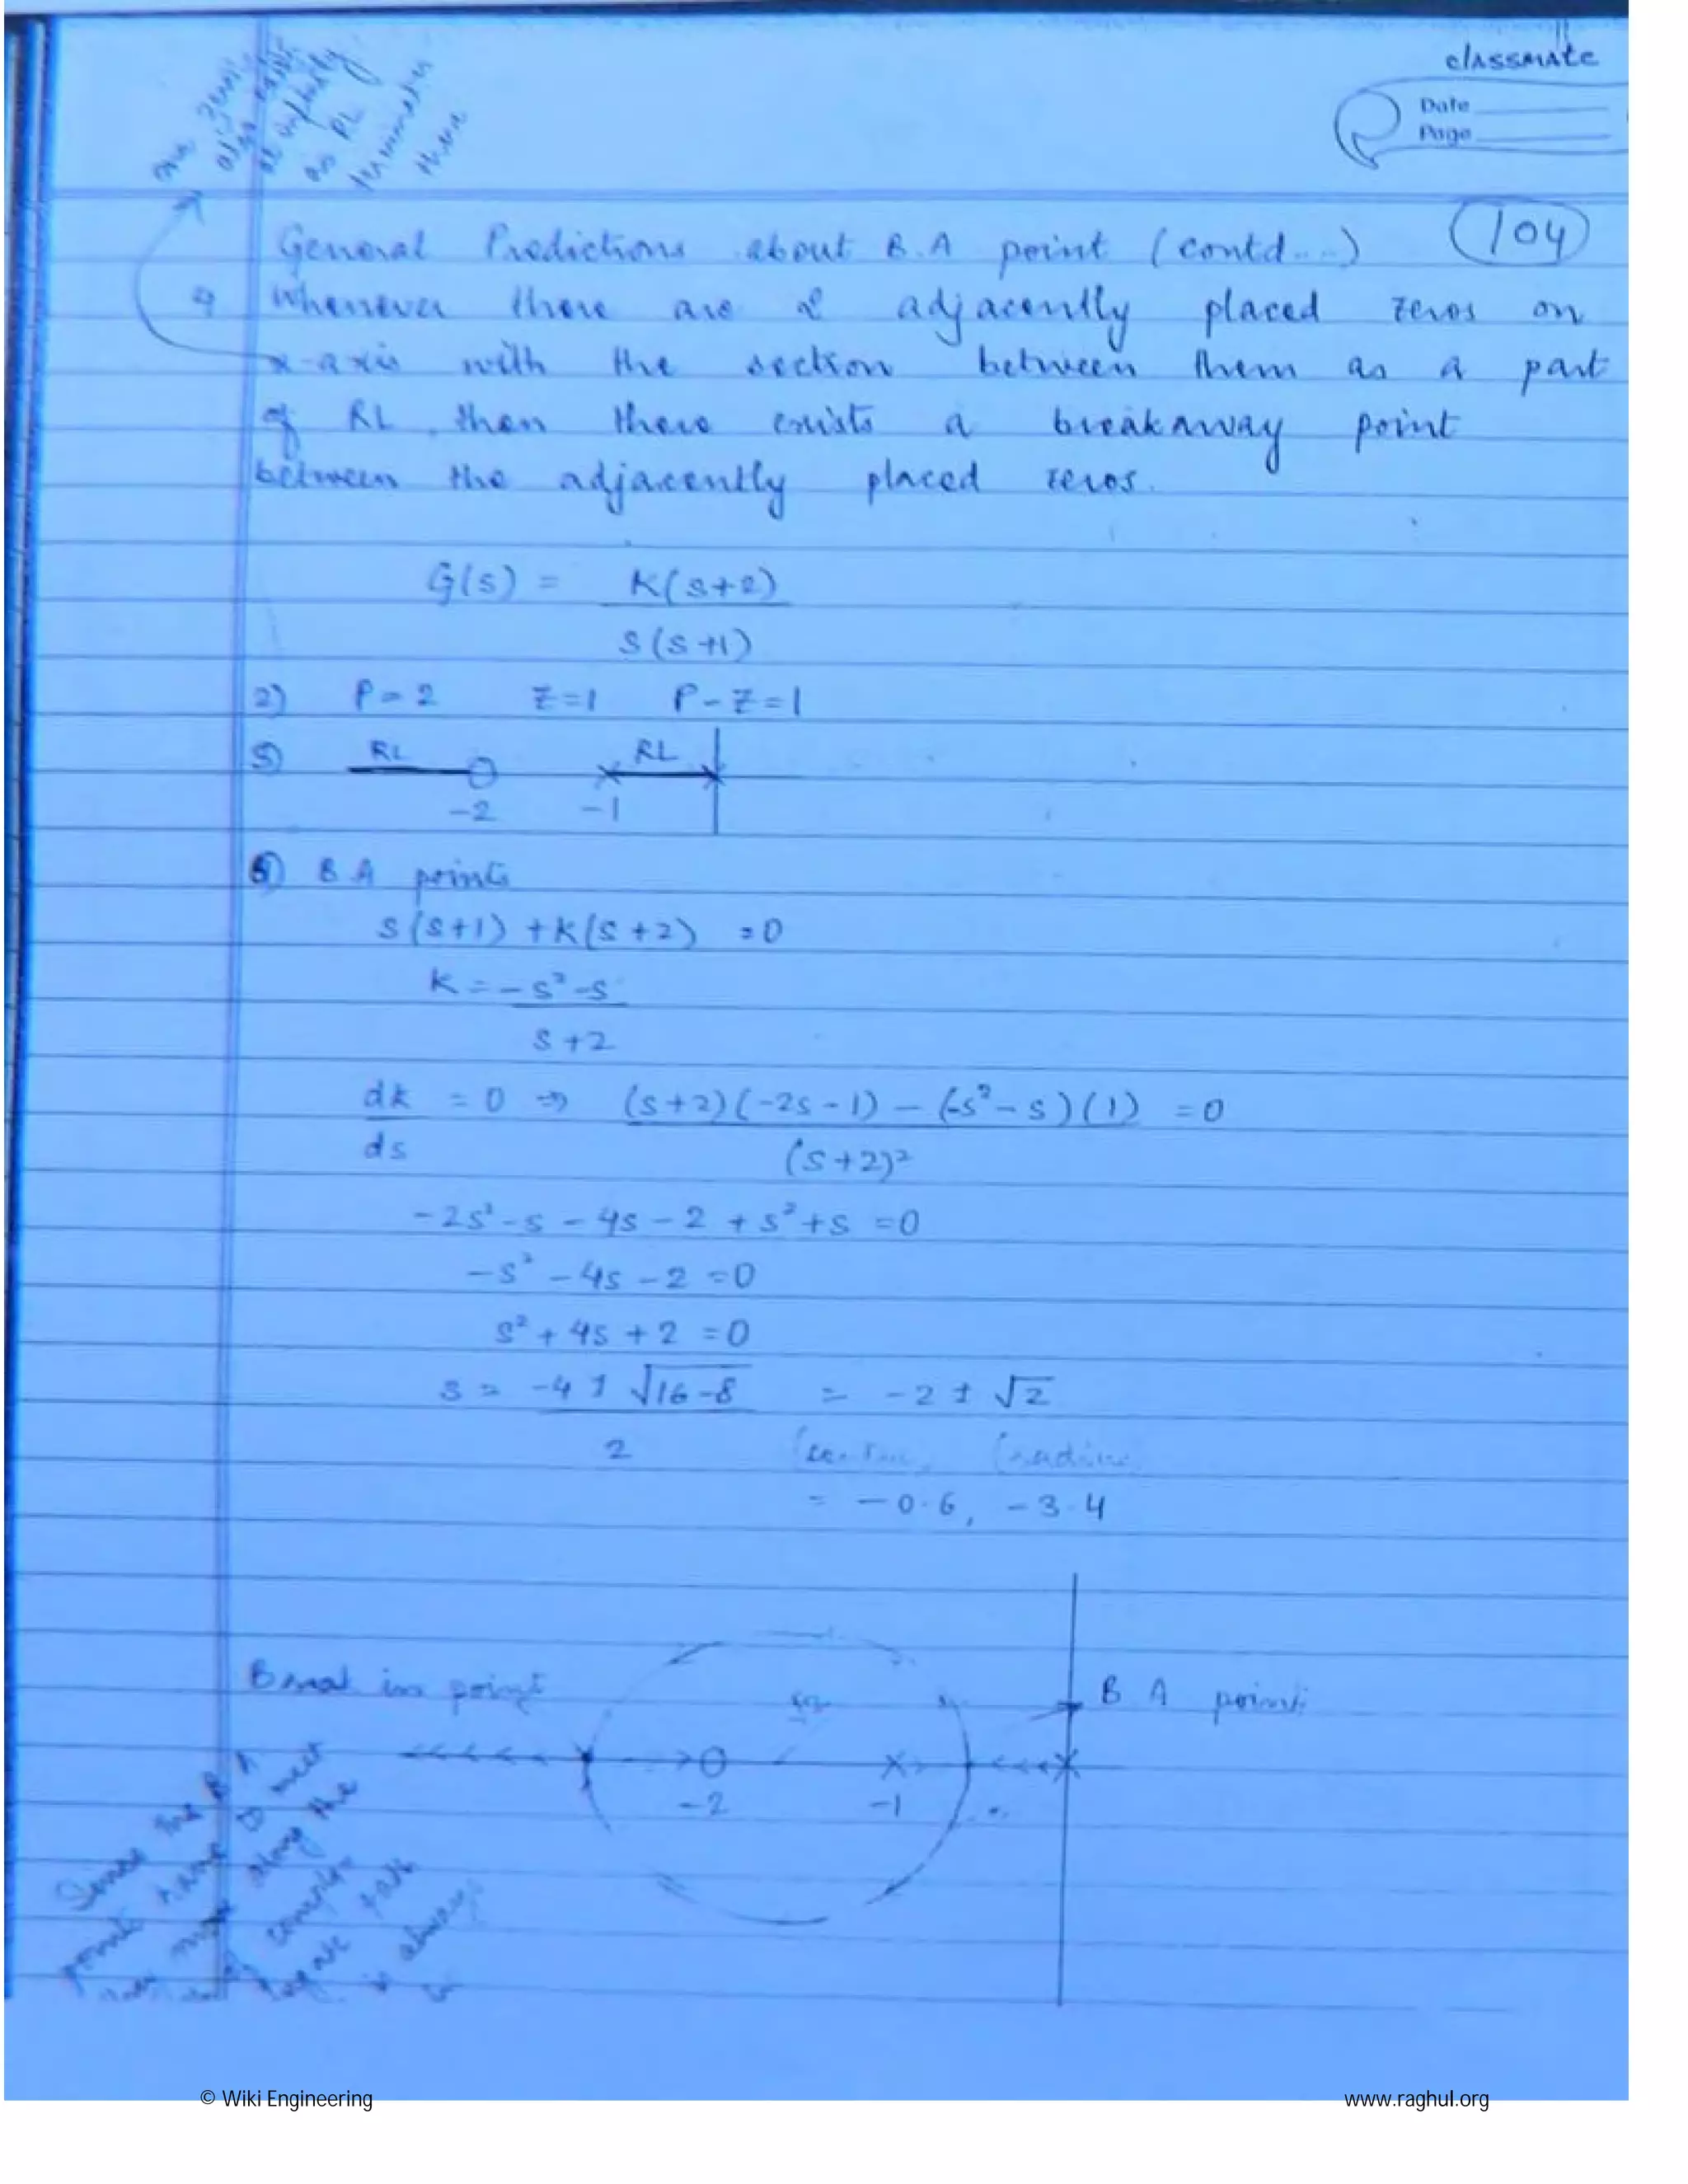 classmate
Date
Page
104
zeros
also exist
at infinity
as RL
terminates
there
General Predictions about B.A point (contd....)
4 Whenever there are 2 adjacently placed zeros on
x-axis with the section between them as a part
of RL, then there exists a breakaway point
between the adjacently placed zeros.
G(s) = K(s+2)
s(s+1)
2) P = 2 Z=1 P-Z=1
5) RL RL
-2 -1
6) B A points
s(s+1) +K(s+2) =0
K = -s²-s
s+2
dk = 0 ⇒ (s+2)(-2s-1) - (-s²-s)(1) = 0
ds (s+2)²
-2s²-s-4s-2+s²+s =0
-s²-4s-2 =0
s²+4s+2 =0
s = -4 ± √16-8 = -2 ± √2
2 (centre) (radius)
= -0.6, -3.4
Break in point
√2
B A point
-2 -1
Since the B A
point have to meet
move along the
complex
path
is always